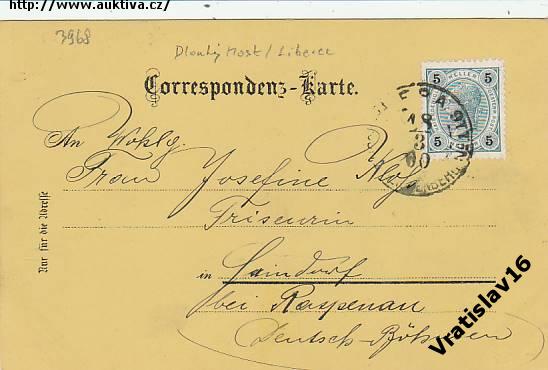 http://www.auktiva.cz/
3968
Dlouhý Most / Liberec
Correspondenz-Karte.
5 HELLER 5
5 5
18
3
00
An Wohlg.
Frau Josefine
Friseurin
in Haindorf
bei Raspenau
Deutsch-Böhmen
Nur für die Adresse
Vratislav16